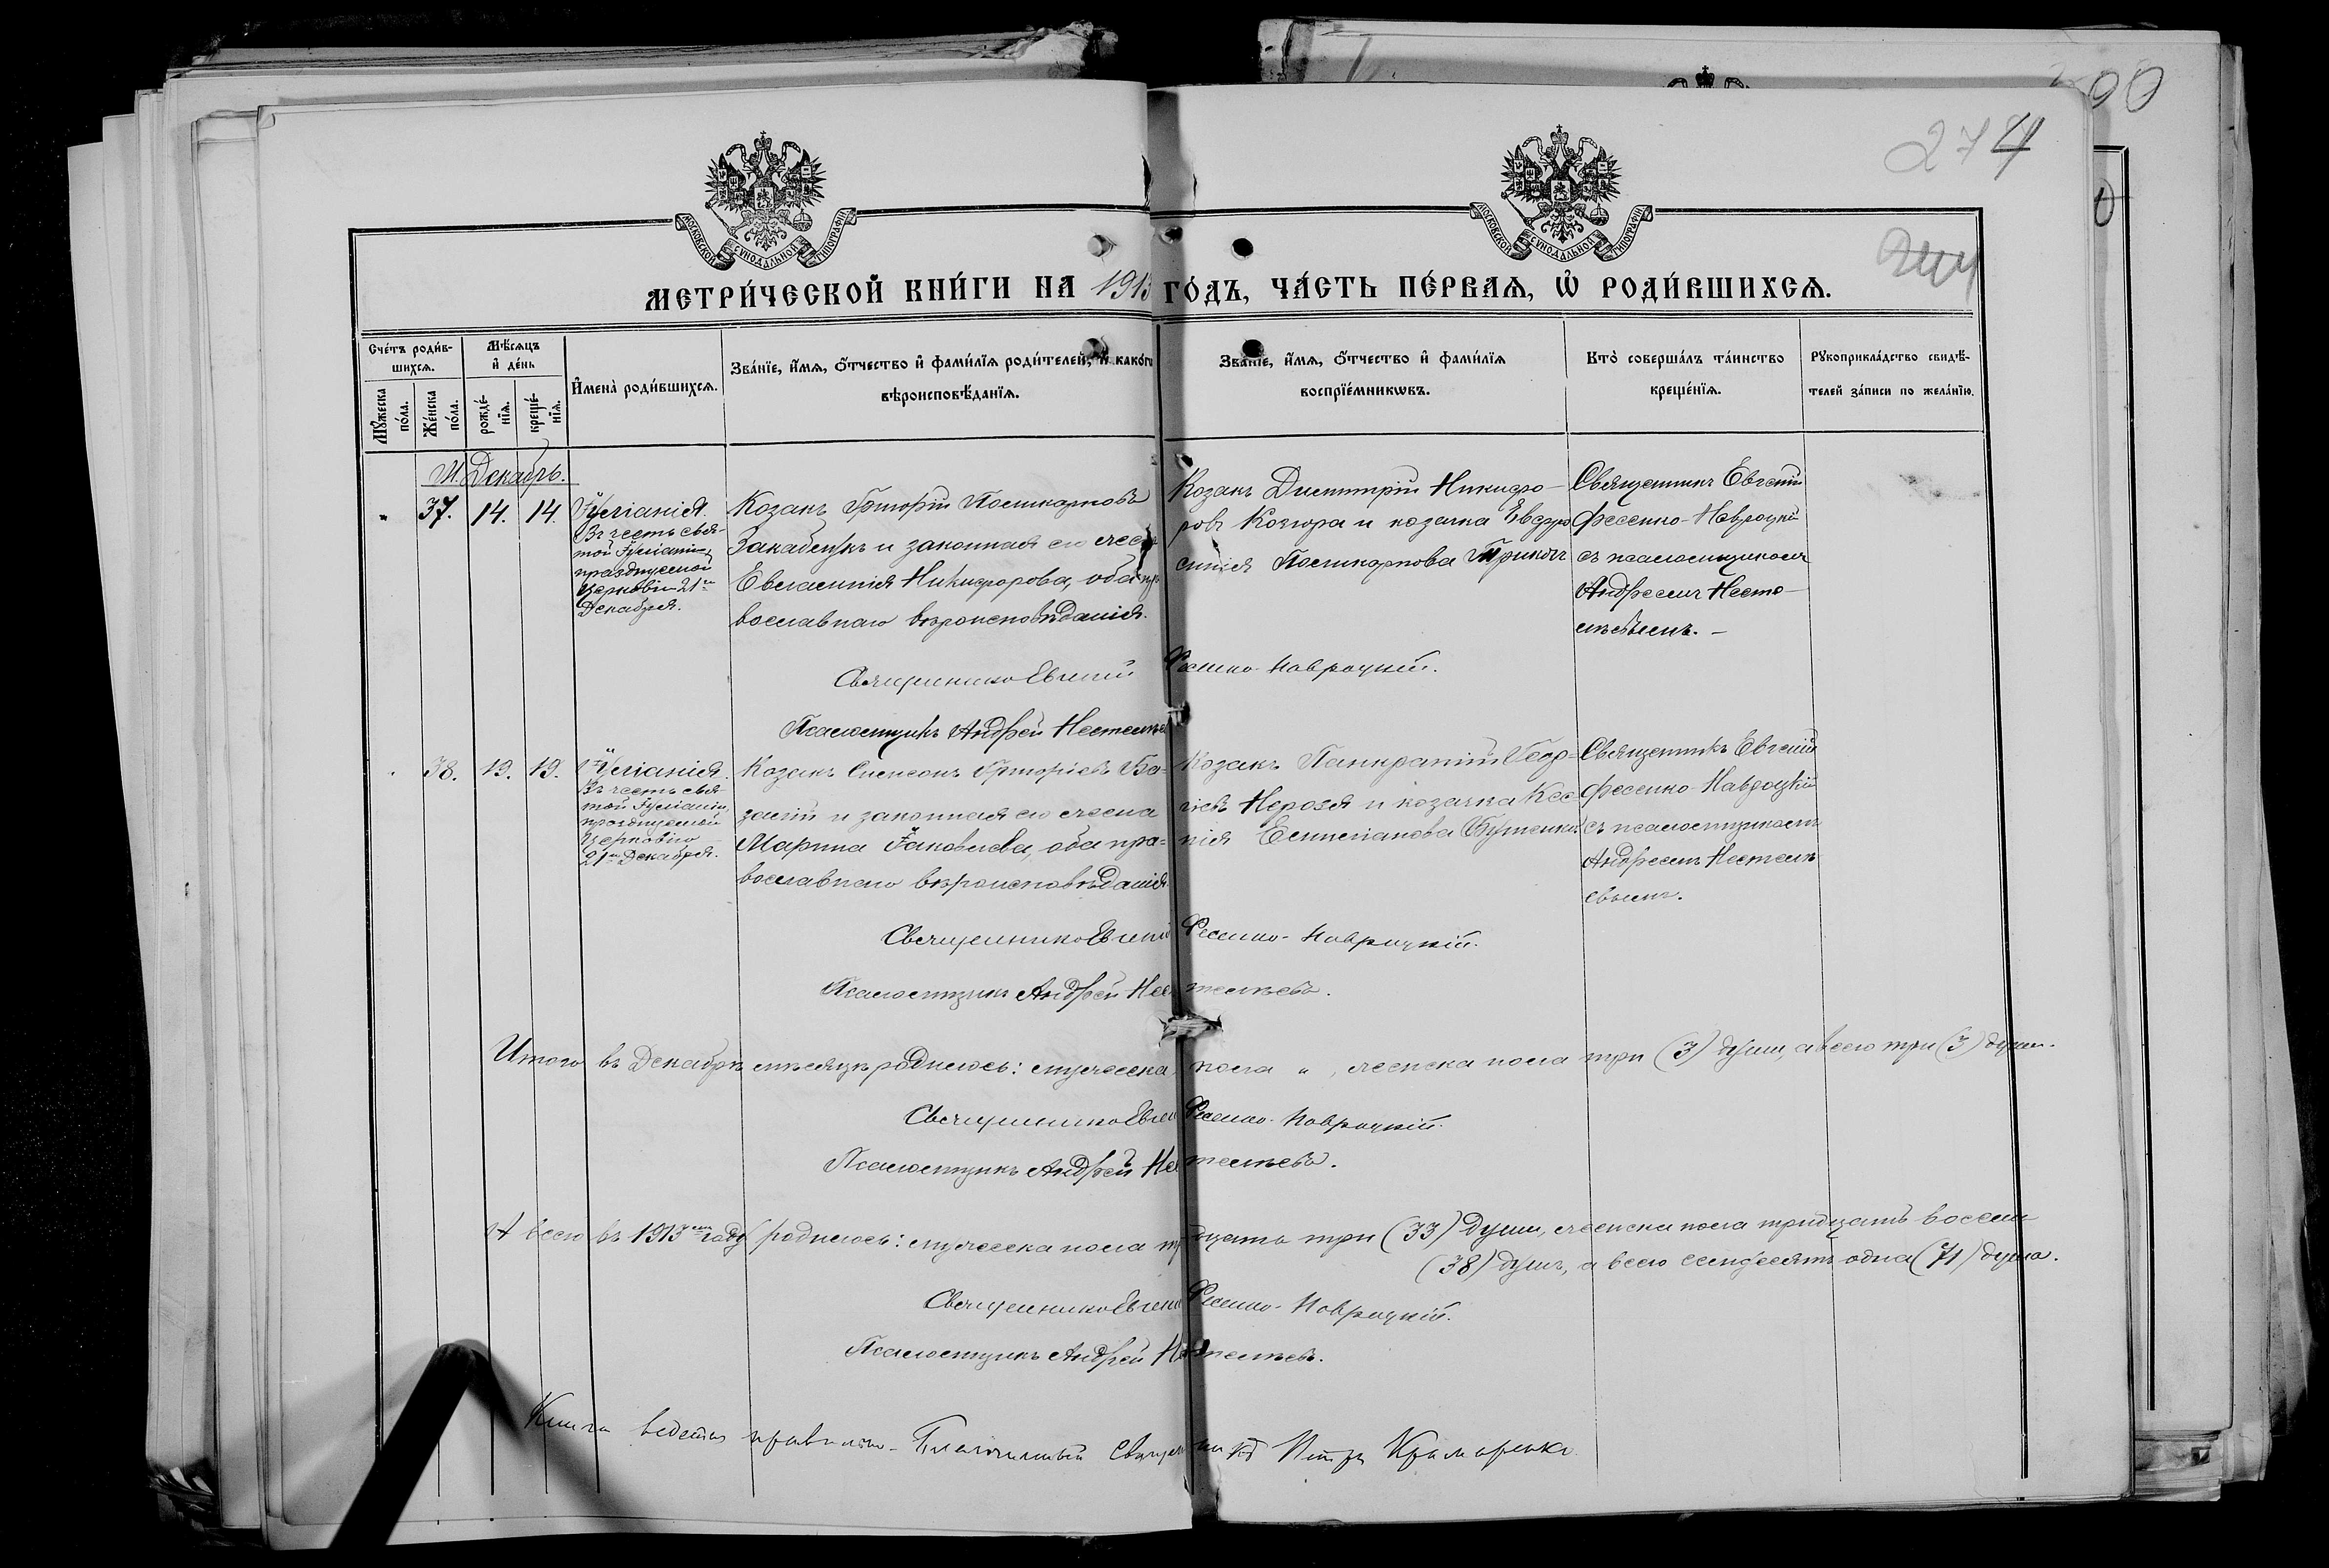 200
274
МОСКОВСКОЙ СѴНОДАЛЬНОЙ ТИПОГРАФІИ
МОСКОВСКОЙ СѴНОДАЛЬНОЙ ТИПОГРАФІИ
МЕТРИ́ЧЕСКОЙ КНИ́ГИ НА 1913 ГО́ДЪ, ЧА́СТЬ ПЕ́РВАѦ, Ѡ҆ РОДИ́ВШИХСѦ.
Сче́тъ роди́в-
шихсѧ.
Мѣ́сѧцъ
и҆ де́нь
И҆мена̀ роди́вшихсѧ.
Зва́нїе, и҆́мѧ, ѻ҆́тчество и҆ фами́лїѧ роди́телей, и҆ како́гѡ
вѣроисповѣ́данїѧ.
Зва́нїе, и҆́мѧ, ѻ҆́тчество и҆ фами́лїѧ
воспрїе́мникѡвъ.
Кто̀ соверша́лъ та́инство
креще́нїѧ.
Рꙋкоприкла́дство свидѣ́-
телей за́писи по жела́нїю.
Мꙋ́жеска
по́ла.
Же́нска
по́ла.
рожде́-
нїѧ.
креще́-
нїѧ.
М. Декабрь.
" 37. 14. 14. Іуліанія.
Въ честь свя-
той Іуліаніи,
празднуемой
Церковію 21го
Декабря.
Козакъ Григорій Поликарповъ
Закаблукъ и законная его жена
Евлампія Никифорова, оба пра-
вославнаго вѣроисповѣданія.
Козакъ Димитрій Никифо-
ровъ Коюра и козачка Евфро
синія Поликарпова
Священникъ Евгеній
Фесенко-Навроцкій
съ псаломщикомъ
Андреемъ Несте-
мѣевымъ. –
Священникъ Евгеній Фесенко-Навроцкій.
Псаломщикъ Андрей
38. 19. 19. Іуліанія.
Въ честь свя
той Іуліаніи,
празднуемой
Церковію
21го Декабря.
Козакъ Симеонъ Григорьевъ
и законная его жена
Марина Іаковлева, оба пра-
вославнаго вѣроисповѣданія
Козакъ Панкратій Геор-
гіевъ Нерозя и козачка Ксе
нія Емиліанова Бутенко
Священникъ Евгеній
Фесенко-Навроцкій
съ псаломщикомъ
Андреемъ Нестемѣ
евымъ.
Священникъ Евгеній Фесенко-Навроцкій.
Псаломщикъ Андрей Нестемѣевъ.
Итого въ Декабрѣ мѣсяцѣ родилось: мужеска пола ", женска пола три (3) души, а всего три (3) души.
Священникъ Евгеній Фесенко-Навроцкій.
Псаломщикъ Андрей Нестемѣевъ.
А всего въ 1913мъ году родилось: мужеска пола тридцать три (33) души, женска пола тридцать восемь
(38) душъ, а всего семьдесятъ одна (71) душа.
Священникъ Евгеній Фесенко-Навроцкій.
Псаломщикъ Андрей Нестемѣевъ.
Книга ведется правильно – Благочинный Священникъ Петръ Крамаренко